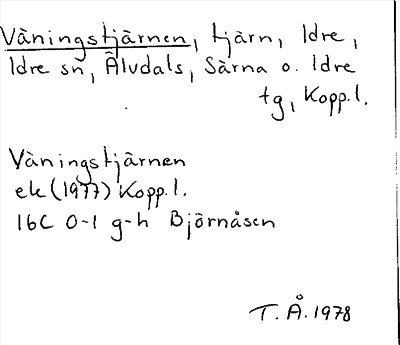 Våningstjärnen, tjärn, Idre,
Idre sn, Älvdals, Särna o. Idre
tg, Kopp.l.
Våningstjärnen
ek (1977) Kopp.l.
16C 0-1 g-h Björnåsen
T.Å.1978